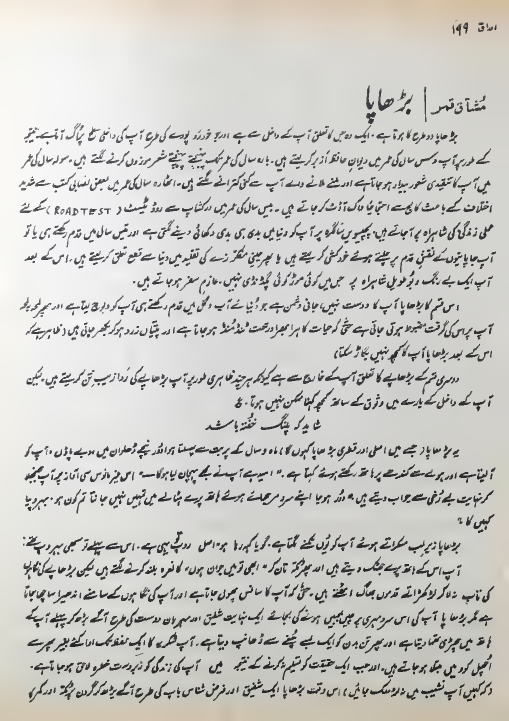 اوراق ۱۹۹
مُشتاق قمر | بڑھاپا
بڑھاپا دو طرح کا ہوتا ہے۔ ایک وہ جس کا تعلق آپ کے داخل سے ہے اور جو خودرو پودے کی طرح آپ کی داخلی سطح پُر اُگ آتا ہے۔ نتیجۃً
کے طور پر آپ دس سال کی عمر میں دیوانِ حافظ اُز بر کر لیتے ہیں۔ بارہ سال کی عمر تک پہنچتے پہنچتے شعر موزوں کرنے لگتے ہیں۔ سولہ سال کی عمر
میں آپ کا تنقیدی شعور بیدار ہو جاتا ہے اور ملنے ملانے والے آپ سے کنی کترانے لگتے ہیں۔ اٹھارہ سال کی عمر میں بعض نصابی کتب سے شدید
اختلاف کے باعث کالج سے احتجاجاً واک آؤٹ کر جاتے ہیں۔ بیس سال کی عمر میں در کتاب سے روڈ ٹیسٹ (ROAD TEST) کے لئے
عملی زندگی کی شاہراہ پر آ جاتے ہیں۔ پچیسویں سالگرہ پر آپ کو دنیا میں بدی ہی بدی دکھائی دینے لگتی ہے اور تیس سال میں قدم رکھتے ہی یا تو
آپ جاپانیوں کے نقشِ قدم پر چلتے ہوئے خودکشی کر لیتے ہیں یا پھر مینی متکرز نے کی تقلید میں دنیا سے قطع تعلق کر لیتے ہیں۔ اس کے بعد
آپ ایک بے رنگ و بُو طویل شاہراہ پر جس میں کوئی موڑ کوئی پگڈنڈی نہیں۔ عازمِ سفر ہو جاتے ہیں۔
اس قسم کا بڑھاپا آپ کا دوست نہیں، جانی دشمن ہے جو دُنیائے آب و گل میں قدم رکھتے ہی آپ کو دبوچ لیتا ہے اور پھر لمحہ بہ لمحہ
آپ پر اس کی گرفت مضبوط ہوتی جاتی ہے حتیٰ کہ حیات کا ہرا بھرا درخت ٹُنڈ مُنڈ ہو جاتا ہے اور پتیاں زرد ہو کر بکھر جاتی ہیں (ظاہر ہے کہ
اس کے بعد بڑھاپا آپ کا کچھ نہیں بگاڑ سکتا)
دوسری قسم کے بڑھاپے کا تعلق آپ کے خارج سے ہے کیونکہ ہرچند ظاہری طور پر آپ بڑھاپے کی رِدا زیبِ تن کر لیتے ہیں۔ لیکن
آپ کے داخل کے بارے میں وثوق کے ساتھ کچھ کہنا ممکن نہیں ہوتا۔ ع
شاید کہ پلنگ خفتہ باشد
یہ بڑھاپا (جسے میں اصلی اور فطری بڑھاپا کہوں گا) ماہ و سال کے پربت سے پھسلتا ہوا اور نیچے ڈھلوان میں دبے پاؤں آپ کو
آ لیتا ہے اور ہولے سے کندھے پر ہاتھ رکھتے ہوئے کہتا ہے۔ "امید ہے آپ نے مجھے پہچان لیا ہو گا۔" اس غیر مانوس سی آواز پر آپ جھنجھلا
کر نہایت بے رُخی سے جواب دیتے ہیں "دُور ہو جا اپنے سردِ مرجھائے ہوئے ہاتھ پرے ہٹا لے میں تمہیں نہیں جانتا تم کون ہو۔ بہروپیا
کہیں کا۔"
بڑھاپا زیرِ لب مسکراتے ہوئے آپ کو یُوں تکنے لگتا ہے۔ گویا کہہ رہا ہو "اصل روپ یہی ہے۔ اس سے پہلے تو سبھی بہروپ تھے!
آپ اس کے ہاتھ پرے جھٹک دیتے ہیں اور پھر گھونسہ تان کر "ابھی تو میں جوان ہوں" کا نعرہ بلند کرنے لگتے ہیں لیکن بڑھاپے کی نگاہوں
کی تاب نہ لا کر لڑکھڑاتے قدموں بھاگ اٹھتے ہیں۔ حتیٰ کہ آپ کا سانس پھول جاتا ہے اور آپ کی نگاہوں کے سامنے اندھیرا سا چھا جاتا
ہے مگر بڑھاپا آپ کی اس سرد مہری پر چیں بجبیں ہونے کی بجائے ایک نہایت شفیق اور مہربان دوست کی طرح آگے بڑھ کر پہلے آپ کے
ہاتھ میں چھڑی تھما دیتا ہے اور پھر تن بدن کو ایک لمبے چُغے سے ڈھانپ دیتا ہے۔ آپ شکریہ کا ایک لفظ تک ادا کئے بغیر پھر سے
اُچھل کود میں مبتلا ہو جاتے ہیں۔ اور جب ایک حقیقت کو تسلیم نہ کرنے کے نتیجہ میں آپ کی زندگی کو زبردست خطرہ لاحق ہو جاتا ہے۔
(کہ کہیں آپ نشیب میں نہ لڑھک جائیں) اس وقت بڑھاپا ایک شفیق اور فرض شناس باپ کی طرح آگے بڑھ کر گردن پکڑتا اور کمر کا